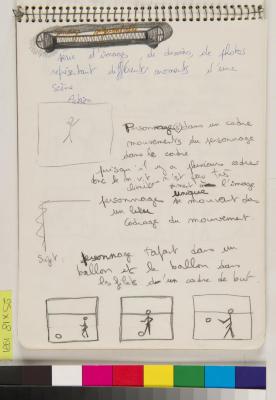 d'images, de dessins, de photos
représentant différents moments d'une
scène
Action
Personnage(s) dans un cadre
mouvements du personnage
dans le cadre
puisqu'il y a plusieurs cadres
donc le m.v.t n'est pas très
limité l'image
unique
personnage se mouvant dans
un lieu
cadrage du mouvement.
Sujet : personnage tapant dans un
ballon et le ballon dans
les filets d'un cadre de but.